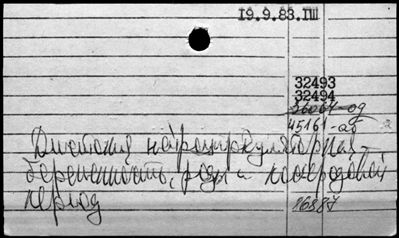 19.9.83.ІШ
32493
32494
36004-од
45161-аб
Дистония нейроциркуляторная -
беременность, роды и послеродовой
период
16887